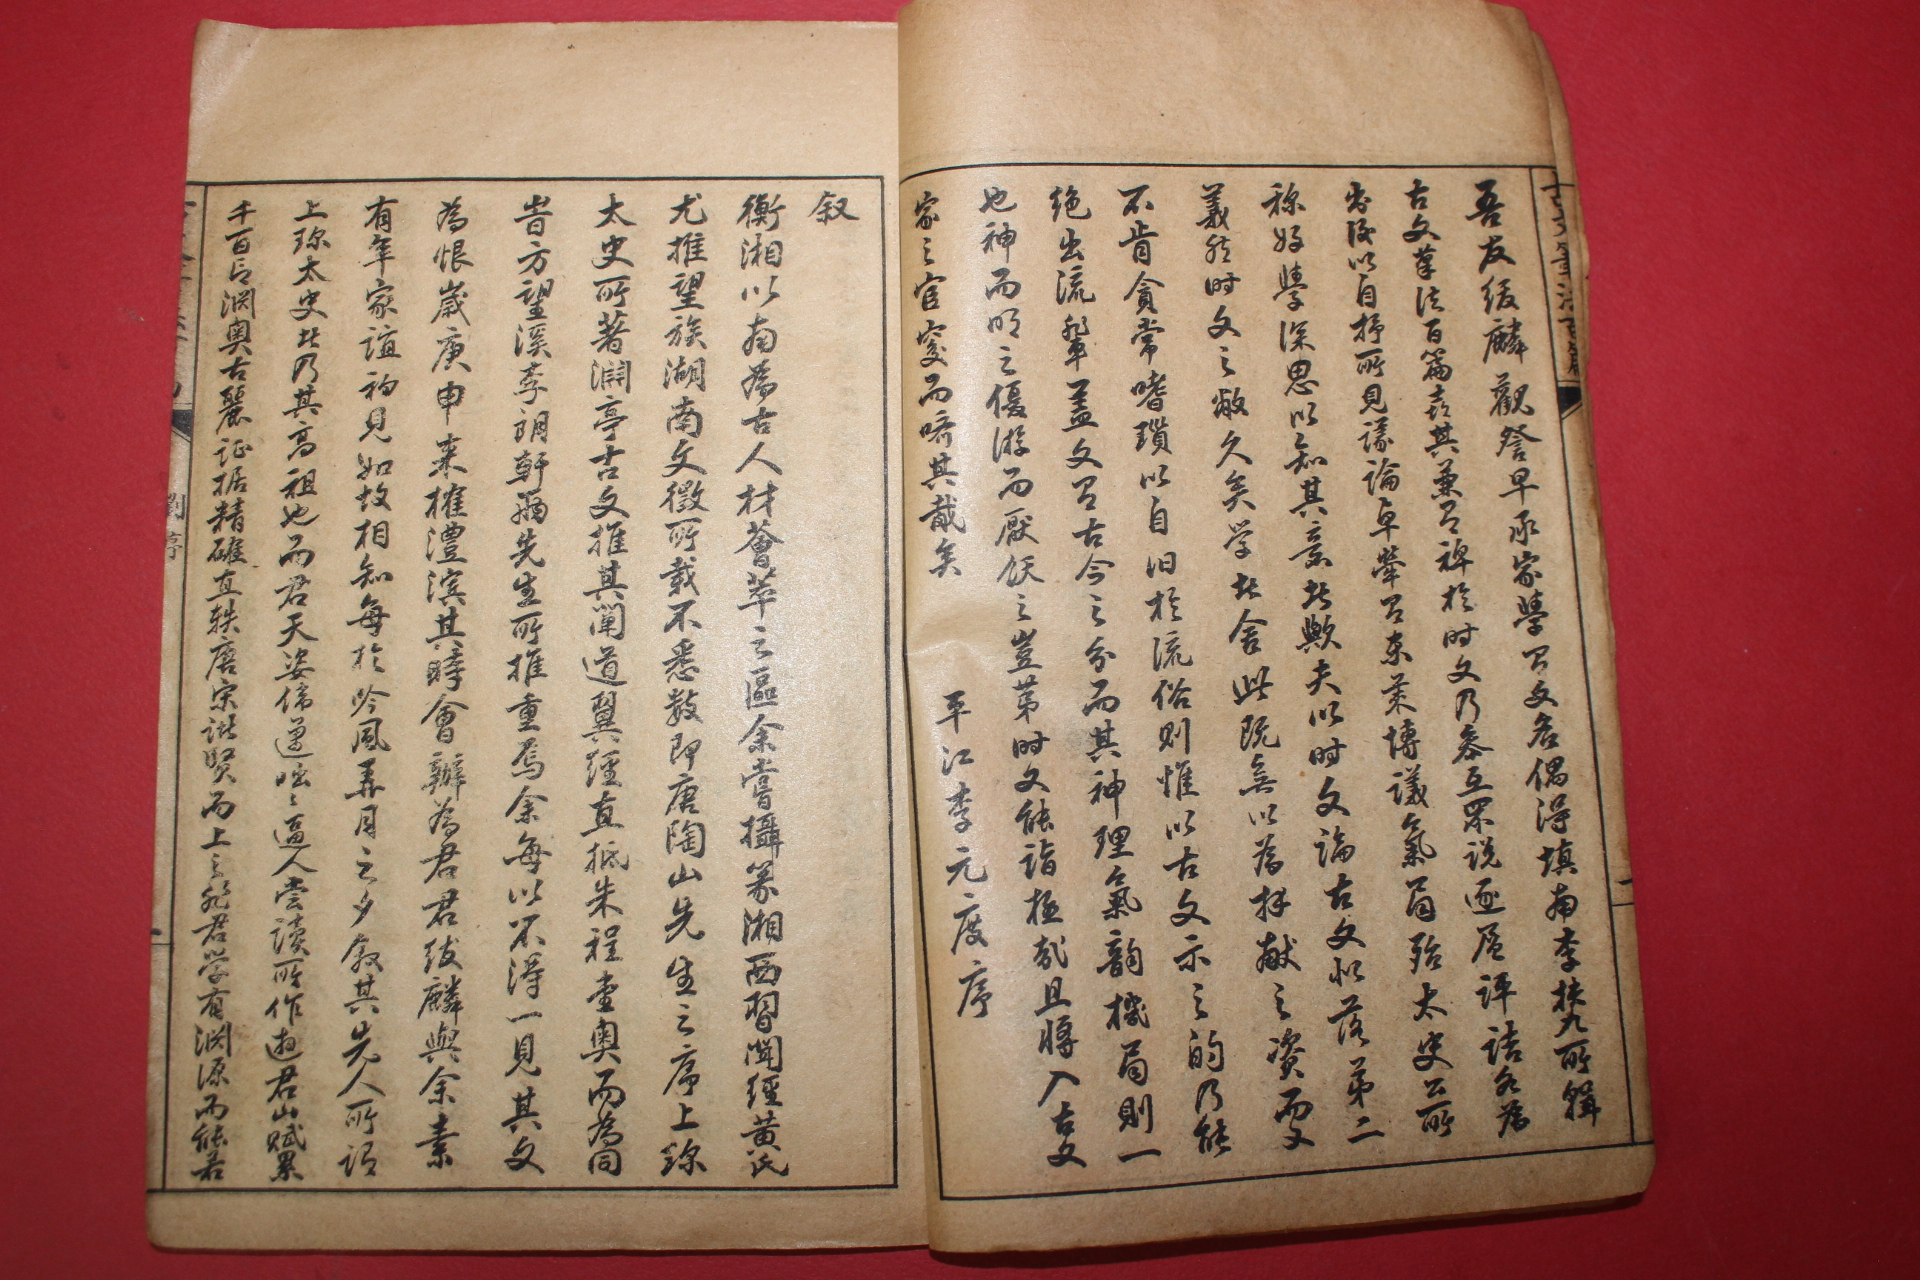 吾友紱麟觀詧早承家學有文名偶得填南李扶九所輯
古文筆法百篇喜其兼有裨於时文乃参互眾说逐層評詰名為
書後以自抒所見議論卓犖有東萊博議氣局殆太史公所
称好學深思心知其意者歟夫以时文論古文似落第二
義然时文之敝久矣学者舍此既無以為拜献之资而又
不肯貪常嗜瑣以自汩於流俗则惟以古文示之的乃能
绝出流輩盖文有古今之分而其神理氣韵機局則一
也神而明之優游而厭飫之豈第时文能诣極哉且將入古文
家之窔而嚌其胾矣
平江李元度序
叙
衡湘以南為古人材薈萃之區余嘗攝篆湘西習聞經黄氏
尤推望族湖南文徵所载不悉数即唐陶山先生之序上珍
太史所著澗亭古文推其闡道翼經直抵朱程堂奥而為同
昔方望溪李朗軒兩先生所推重焉余每以不得一見其文
為恨歲庚申来榷澧滨其時會辦為君君紱麟與余素
有年家誼初見如故相知每於吟風弄月之夕叙其先人所谓
上珍太史者乃其高祖也而君天姿倜邁咄咄逼人尝读所作遊君山赋累
千百言渊奥古麗证据精確直轶唐宋诸贤而上之非君学有渊源而能若
古文筆法百篇